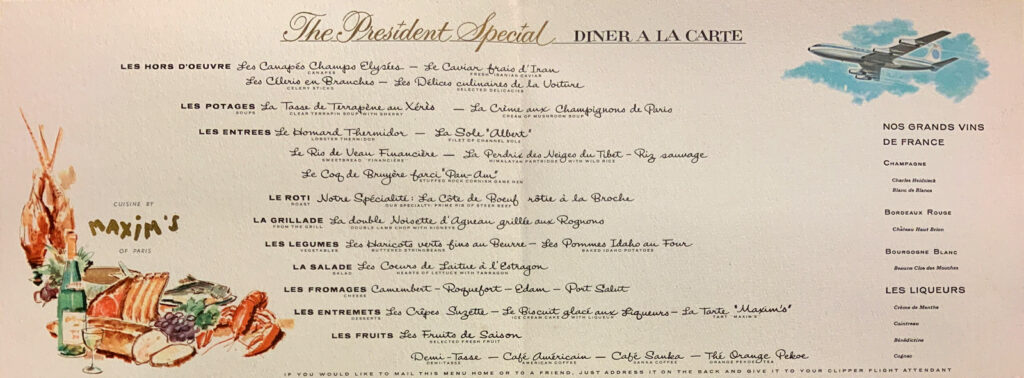 The President Special DINER A LA CARTE
LES HORS D'OEUVRE Les Canapés Champs Elysées — Le Caviar frais d'Iran
CANAPES FRESH IRANIAN CAVIAR
Les Céleris en Branches — Les Délices culinaires de la Voiture
CELERY STICKS SELECTED DELICACIES
LES POTAGES La Tasse de Terrapène au Xérès — La Crème aux Champignons de Paris
SOUPS CLEAR TERRAPIN SOUP WITH SHERRY CREAM OF MUSHROOM SOUP
LES ENTREES Le Homard Thermidor — La Sole "Albert"
LOBSTER THERMIDOR FILET OF CHANNEL SOLE
Le Ris de Veau Financière — La Perdrix des Neiges du Tibet - Riz sauvage
SWEETBREAD "FINANCIÈRE" HIMALAYAN PARTRIDGE WITH WILD RICE
Le Coq de Bruyère farci "Pan-Am"
STUFFED ROCK CORNISH GAME HEN
LE ROTI Notre Spécialité: La Côte de Boeuf rôtie à la Broche
ROAST OUR SPECIALTY: PRIME RIB OF STEER BEEF
LA GRILLADE La double Noisette d'Agneau grillée aux Rognons
FROM THE GRILL DOUBLE LAMB CHOP WITH KIDNEYS
LES LEGUMES Les Haricots verts fins au Beurre — Les Pommes Idaho au Four
VEGETABLES BUTTERED STRINGBEANS BAKED IDAHO POTATOES
LA SALADE Les Coeurs de Laitue à l'Estragon
SALAD HEARTS OF LETTUCE WITH TARRAGON
LES FROMAGES Camembert - Roquefort - Edam - Port Salut
CHEESE
LES ENTREMETS Les Crêpes Suzette — Le Biscuit glacé aux Liqueurs — La Tarte "Maxim's"
DESSERTS ICE CREAM CAKE WITH LIQUEUR TART "MAXIM'S"
LES FRUITS Les Fruits de Saison
SELECTED FRESH FRUIT
Demi-Tasse — Café Américain — Café Sanka — Thé Orange Pekoe
DEMI-TASSE AMERICAN COFFEE SANKA COFFEE ORANGE PEKOE TEA
IF YOU WOULD LIKE TO MAIL THIS MENU HOME OR TO A FRIEND, JUST ADDRESS IT ON THE BACK AND GIVE IT TO YOUR CLIPPER FLIGHT ATTENDANT
CUISINE BY
MAXIM'S
OF PARIS
NOS GRANDS VINS
DE FRANCE
CHAMPAGNE
Charles Heidsieck
Blanc de Blancs
BORDEAUX ROUGE
Château Haut Brion
BOURGOGNE BLANC
Beaune Clos des Mouches
LES LIQUEURS
Crème de Menthe
Cointreau
Bénédictine
Cognac